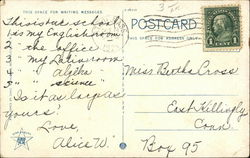 THIS SPACE FOR WRITING MESSAGES
POSTCARD
This is our school
1 is my English room
2 " the office
3 " my Latin room
4 " Algebra
5 " science
Is it as large as
yours?
Love,
Alice W.
THIS SPACE FOR ADDRESS ONLY
Miss Bertha Cross
East Killingly
Conn.
Box 95